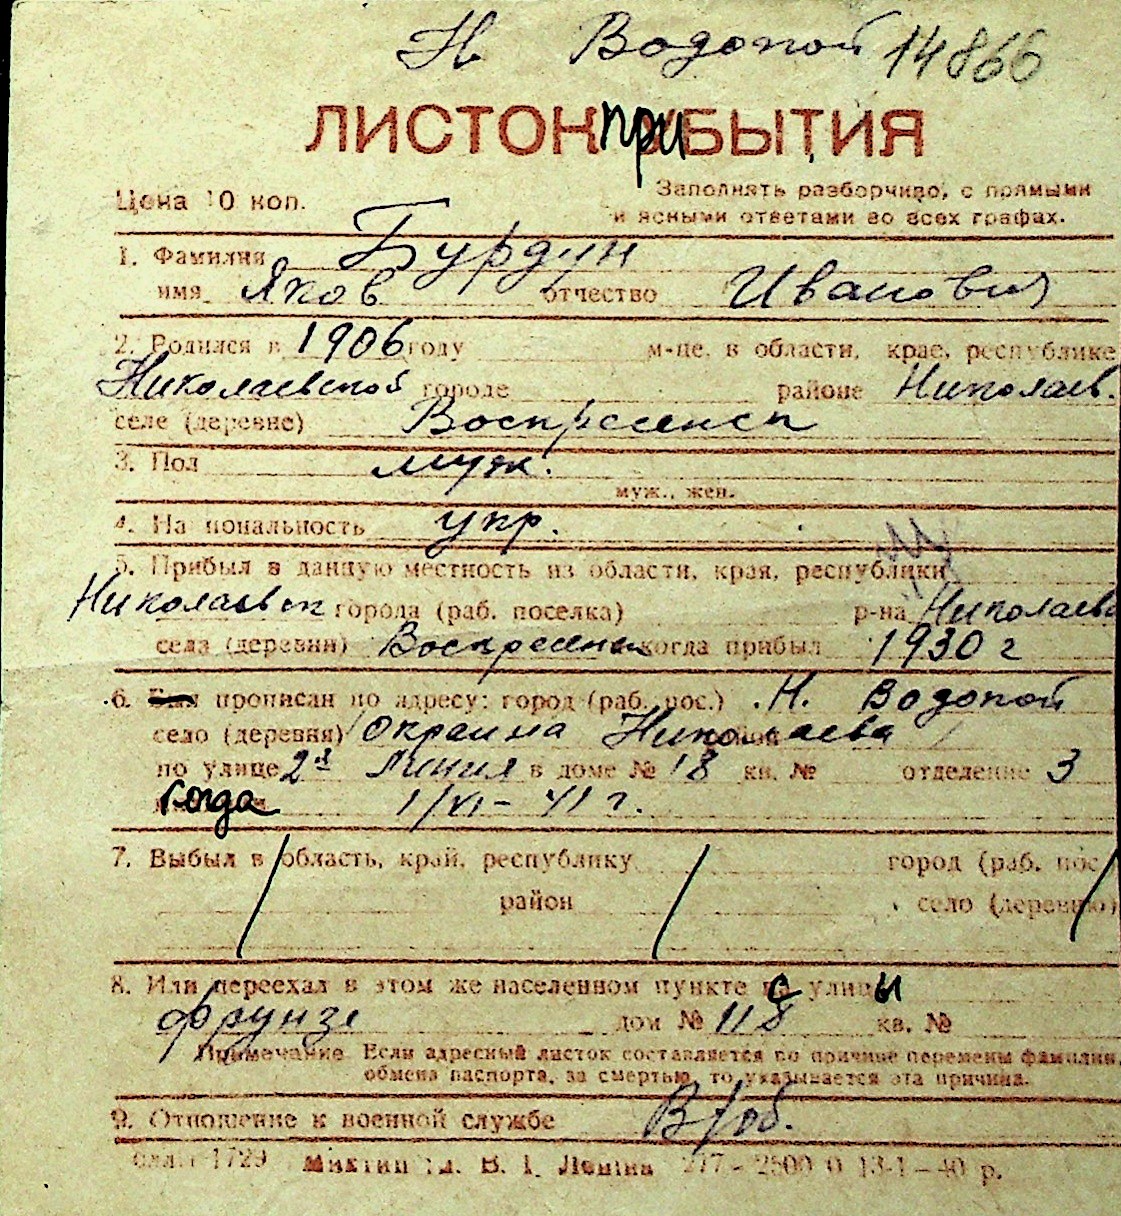 Н. Водопой 14866
ЛИСТОК ПРИБЫТИЯ
Цена 10 коп.
Заполнять разборчиво, с прямыми
и ясными ответами во всех графах.
1. Фамилия Бурдун
имя Яков отчество Иванович
2. Родился в 1906 году м-це, в области, крае, республике
Николаевской городе районе Николаев.
селе (деревне) Воскресенск
3. Пол муж.
муж., жен.
4. На иональность укр.
5. Прибыл в данную местность из области, края, республики
Николаевск города (раб. поселка) р-на Николаевс
села (деревни) Воскресенск когда прибыл 1930 г
6. прописан по адресу: город (раб. пос.) Н. Водопой
село (деревня) Окраина Николаева
по улице 2я Линия в доме № 18 кв. № отделение 3
когда 1/VI - 41 г.
7. Выбыл в область, край, республику город (раб. пос
район село (деревню)
8. Или переехал в этом же населенном пункте с улицы
Фрунзе дом № 118 кв. №
Примечание Если адресный листок составляется по причине перемены фамилии,
обмена паспорта, за смертью, то указывается эта причина.
9. Отношение к военной службе В/об.
1729 В. І. Леніна 277 - 2500 0 13-1-40 р.